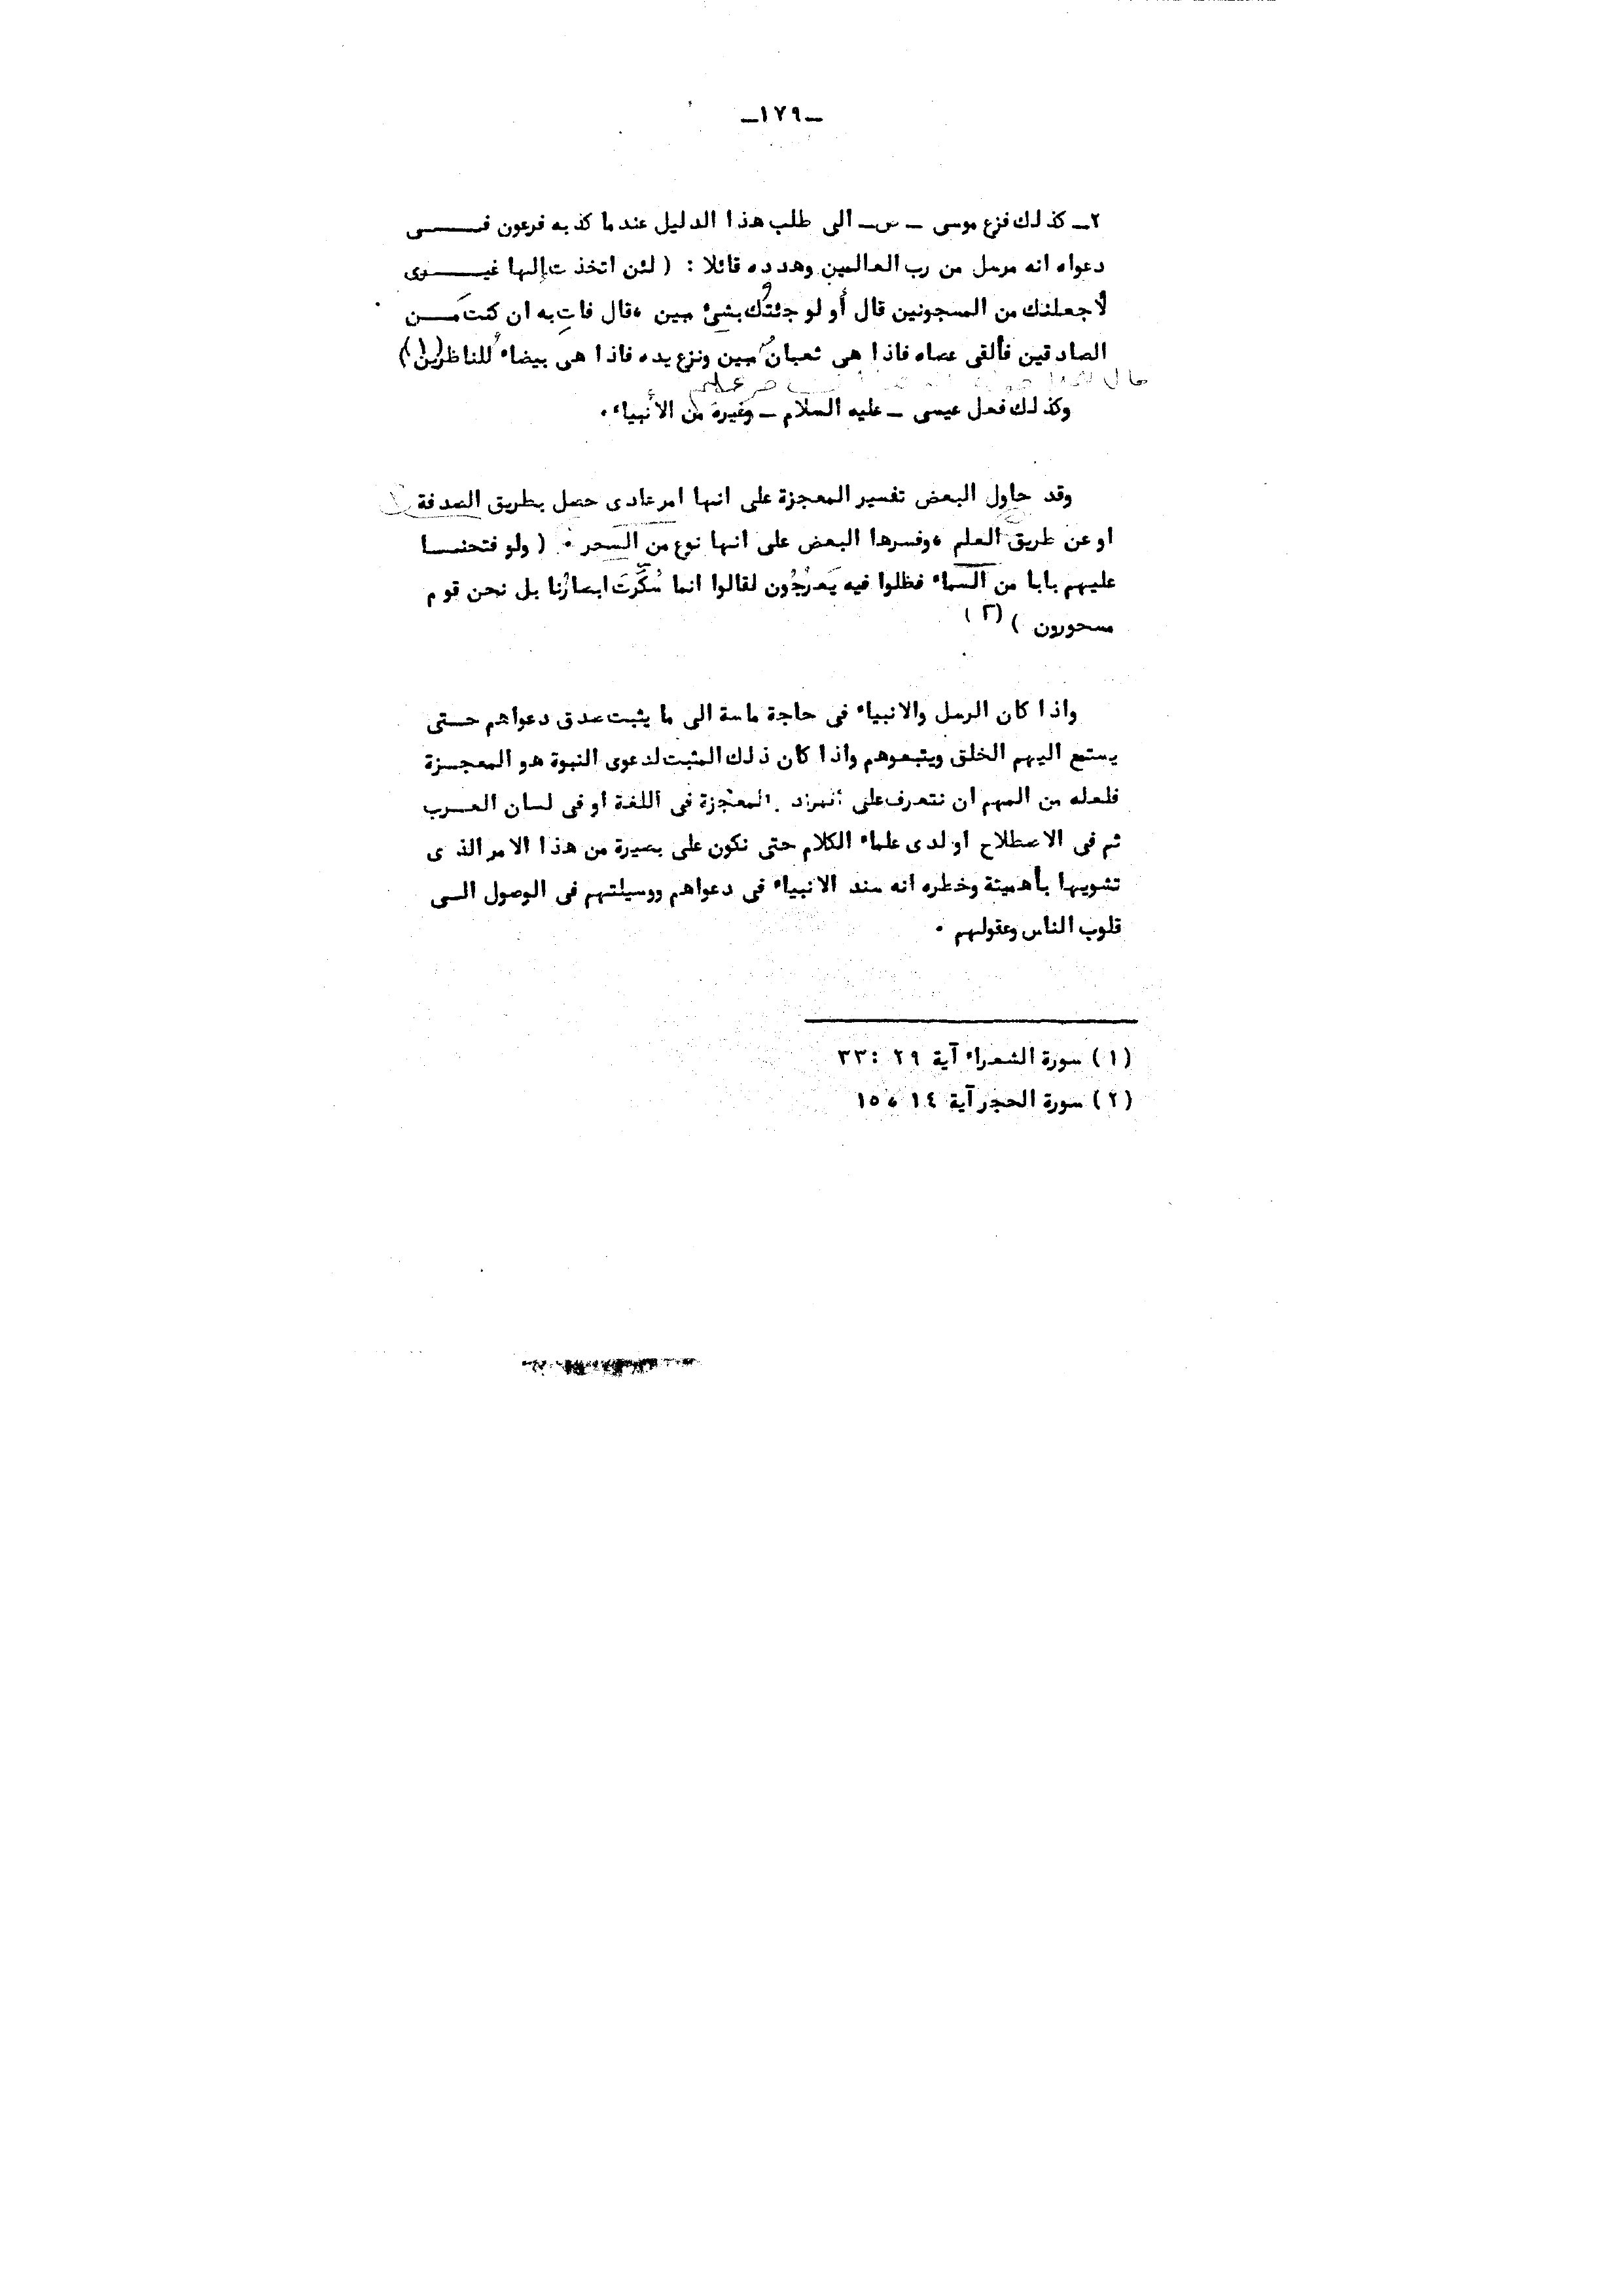 ــ١٧٩ــ
٢ــ كذلك فزع موسى ــ س ــ الى طلب هذا الدليل عندما كذبه فرعون فــــى
دعواه انه مرسل من رب العالمين وهدده قائلا : ( لئن اتخذت إلها غيــــرى
لأجعلنك من المسجونين قال أو لو جئتُك بشئ مبين ،قال فاتِ به ان كنتَ مــــن
الصادقين فألقى عصاه فاذا هى ثعبانٌ مبين ونزع يده فاذا هى بيضاءُ للناظرين(١))
قال
وكذلك فعل عيسى ــ عليه السلام ــ وغيره من الأنبياء .
وقد حاول البعض تفسير المعجزة على انها امر عادى حصل بطريق الصدفة
او عن طريق العلم ،وفسرها البعض على انها نوع من السحر . ( ولو فتحنــا
عليهم بابا من السماء فظلوا فيه يَعرُجُون لقالوا انما سُكِّرَت ابصارُنا بل نحن قوم
مسحورون ) (٢)
واذا كان الرسل والانبياء فى حاجة ماسة الى ما يثبت صدق دعواهم حــتى
يستمع اليهم الخلق ويتبعوهم واذا كان ذلك المثبت لدعوى النبوة هو المعجــزة
فلعله من المهم ان نتعرف على المراد بالمعجزة فى اللغة او فى لسان العــرب
ثم فى الاصطلاح او لدى علماء الكلام حتى نكون على بصيرة من هذا الامر الذى
بأهميتة وخطره انه سند الانبياء فى دعواهم ووسيلتهم فى الوصول الــى
قلوب الناس وعقولهم .
(١) سورة الشعراء آية ٢٩ :٣٣
(٢) سورة الحجر آية ١٤ ، ١٥